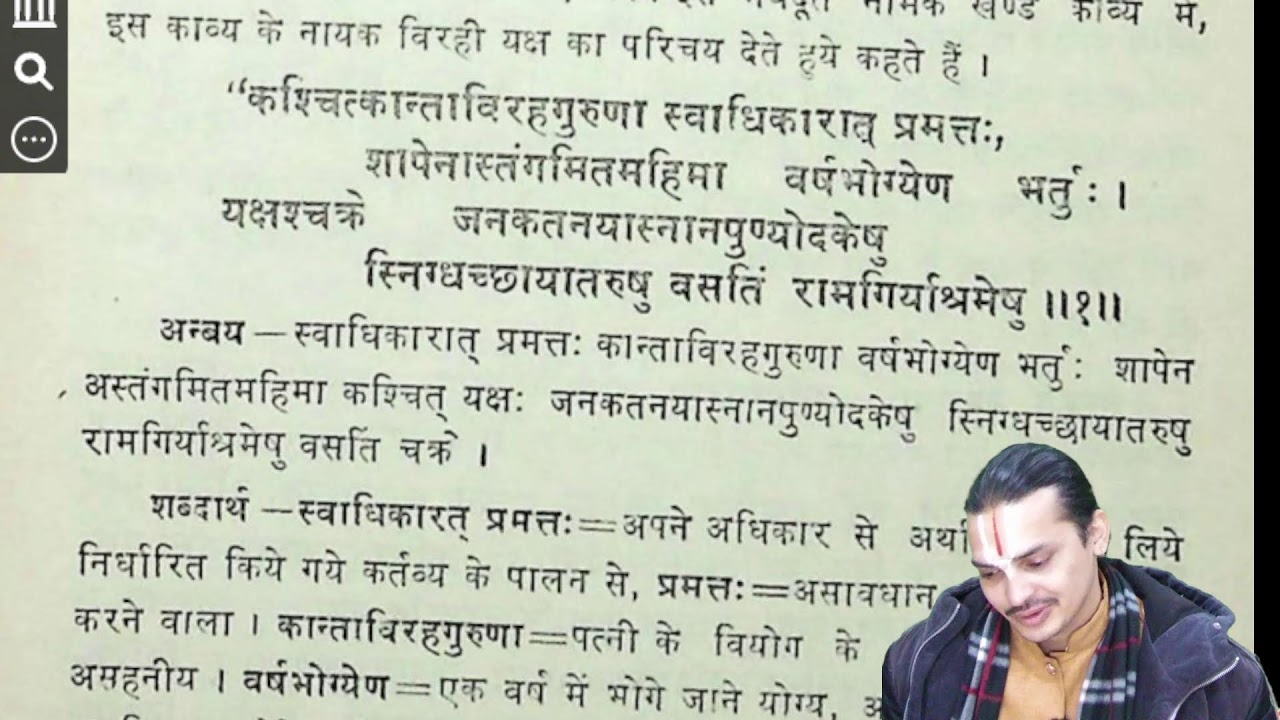 नामक खण्ड काव्य में,
इस काव्य के नायक विरही यक्ष का परिचय देते हुये कहते हैं ।
“कश्चित्कान्ताविरहगुरुणा स्वाधिकारात् प्रमत्तः,
शापेनास्तंगमितमहिमा वर्षभोग्येण भर्तुः ।
यक्षश्चक्रे जनकतनयास्नानपुण्योदकेषु
स्निग्धच्छायातरुषु वसतिं रामगिर्याश्रमेषु ॥१॥
अन्बय – स्वाधिकारात् प्रमत्तः कान्ताविरहगुरुणा वर्षभोग्येण भर्तुः शापेन
अस्तंगमितमहिमा कश्चित् यक्षः जनकतनयास्नानपुण्योदकेषु स्निग्धच्छायातरुषु
रामगिर्याश्रमेषु वसतिं चक्रे ।
शब्दार्थ – स्वाधिकारत् प्रमत्तः = अपने अधिकार से लिये
निर्धारित किये गये कर्तव्य के पालन से, प्रमत्तः = असावधान
करने वाला । कान्ताविरहगुरुणा = पत्नी के वियोग के
असहनीय । वर्षभोग्येण = एक वर्ष में भोगे जाने योग्य,